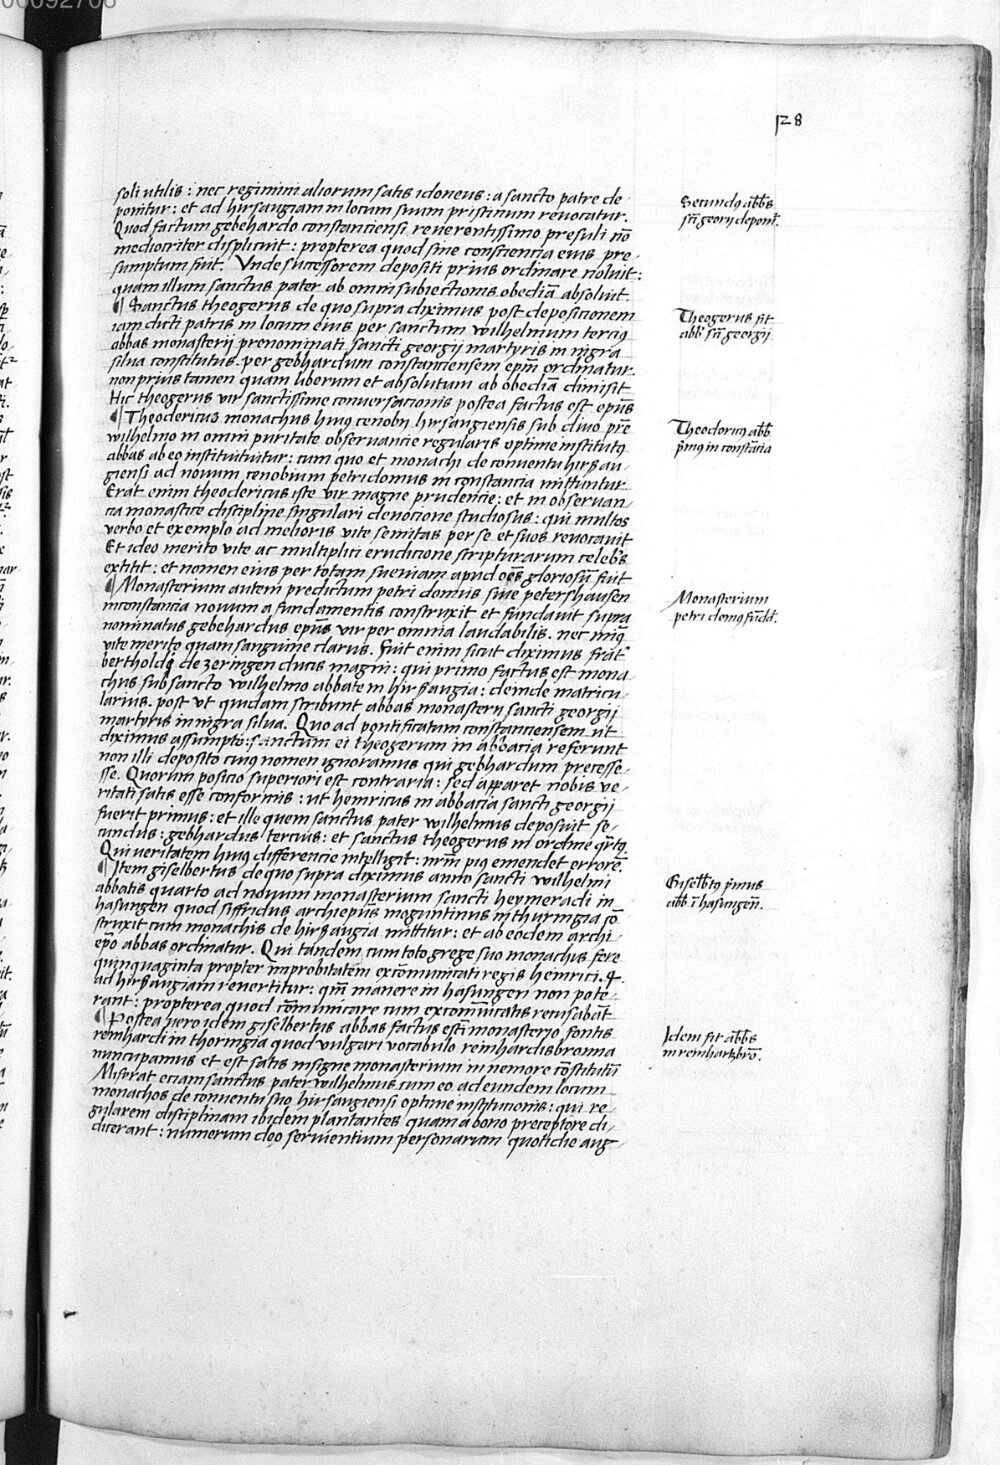 128
soli utilis : nec regimini aliorum satis idoneus : a sancto patre de-
ponitur : et ad hirsaugiam in locum suum pristinum revocatur.
Quod factum gebehardo constanciensi reverentissimo presuli nō
mediocriter displicuit : propterea quod sine consciencia eius pre-
sumptum fuit. Unde successorem depositi prius ordinare noluit :
quam illum sanctus pater ab omni subiectionis obediā absolvit.
¶ Sanctus theogerus de quo supra diximus post deposicionem
iam dicti patris in locum eius per sanctum wilhelmum tercius
abbas monasterii prenominati sancti georgij martyris in nigra
silva constitutus. per gebhardum constanciensem epm̄ ordinatur.
non prius tamen quam liberum et absolutum ab obediā dimisit
Hic theogerus vir sanctissime conversacionis postea factus est epūs
¶ Theodericus monachus huiꝯ cenobij hirsaugiensis sub divo pre
wilhelmo in omni puritate observancie regularis optime institutꝯ
abbas ab eo instituituitur : cum quo et monachi de conventu hirsau-
giensi ad novum cenobium petri domus in constancia mittuntur.
Erat enim theodericus iste vir magne prudencie : et in observan-
cia monastice discipline singulari devocione studiosus : qui multos
verbo et exemplo ad melioris vite semitas per se et suos revocavit
Et ideo merito vite ac multiplici erudicione scripturarum celebs
extitit : et nomen eius per totam sueviam apud oēs gloriosū fuit
¶ Monasterium autem predictum petri domus sive petershausen
in constancia novum a fundamentis construxit et fundavit supra
nominatus gebehardus epūs vir per omnia laudabilis. nec minꝯ
vite merito quam sanguine clarus. Fuit enim sicut diximus frāt
bertholdi de zeringen ducis magni : qui primo factus est mona-
chus sub sancto wilhelmo abbate in hirsaugia : deinde matricu-
larius. post ut quidam scribunt abbas monasterii sancti georgii
martyris in nigra silva. Quo ad pontificatum constanciensem ut
diximus assumpto : sanctum ei theogerum in abbacia referunt
non illi deposito cuiꝯ nomen ignoramus qui gebhardum precesse-
sse. Quorum posicio superiori est contraria : sed apparet nobis ve-
ritati satis esse conformis : ut heinricus in abbacia sancti georgii
fuerit primus : et ille quem sanctus pater wilhelmus deposuit se-
cundus : gebhardus tercius : et sanctus theogerus in ordine qrtꝯ
Qui veritatem huiꝯ differencie intelligit : nrm̄ piꝯ emendet errorē.
¶ Item giselbertus de quo supra diximus anno sancti wilhelmi
abbatis quarto ad novum monasterium sancti heymeradi in
hasungen quod siffridus archiepūs moguntinus in thuringia cō-
struxit cum monachis de hirsaugia mittitur : et ab eodem archi-
epō abbas ordinatur. Qui tandem cum toto grege suo monachis fere
quinquaginta propter improbitatem excōmunicati regis heinrici. 4.
ad hirsaugiam revertitur : qm̄ manere in hasungen non pote-
rant : propterea quod cōmunicare cum excommūicatis recusabāt
¶ Postea vero idem giselbertus abbas factus est in monasterio fontis
reinhardi in thoringia quod vulgari vocabulo reinhardisbronna
nuncupamus et est satis insigne monasterium in nemore cōstitutū
Miserat eciam sanctus pater wilhelmus cum eo ad eundem locum
monachos de conventu suo hirsaugiensi optime institucionis : qui re-
gularem disciplinam ibidem plantantes quam a bono preceptore di-
dicerant : numerum deo servientium personarum quotidie aug-
Secundꝯ abb̄s
sc̄i georii deponit.
Theogerus fit
abb̄ sc̄i georgij
Theodoricꝯ abb̄
p̄mꝯ in constācia
Monasterium
petri domꝯ fūdat.
Giselbtꝯ p̄mus
abb̄ ī hasungen̄.
Idem fit abb̄s
in reinhartzbrō.